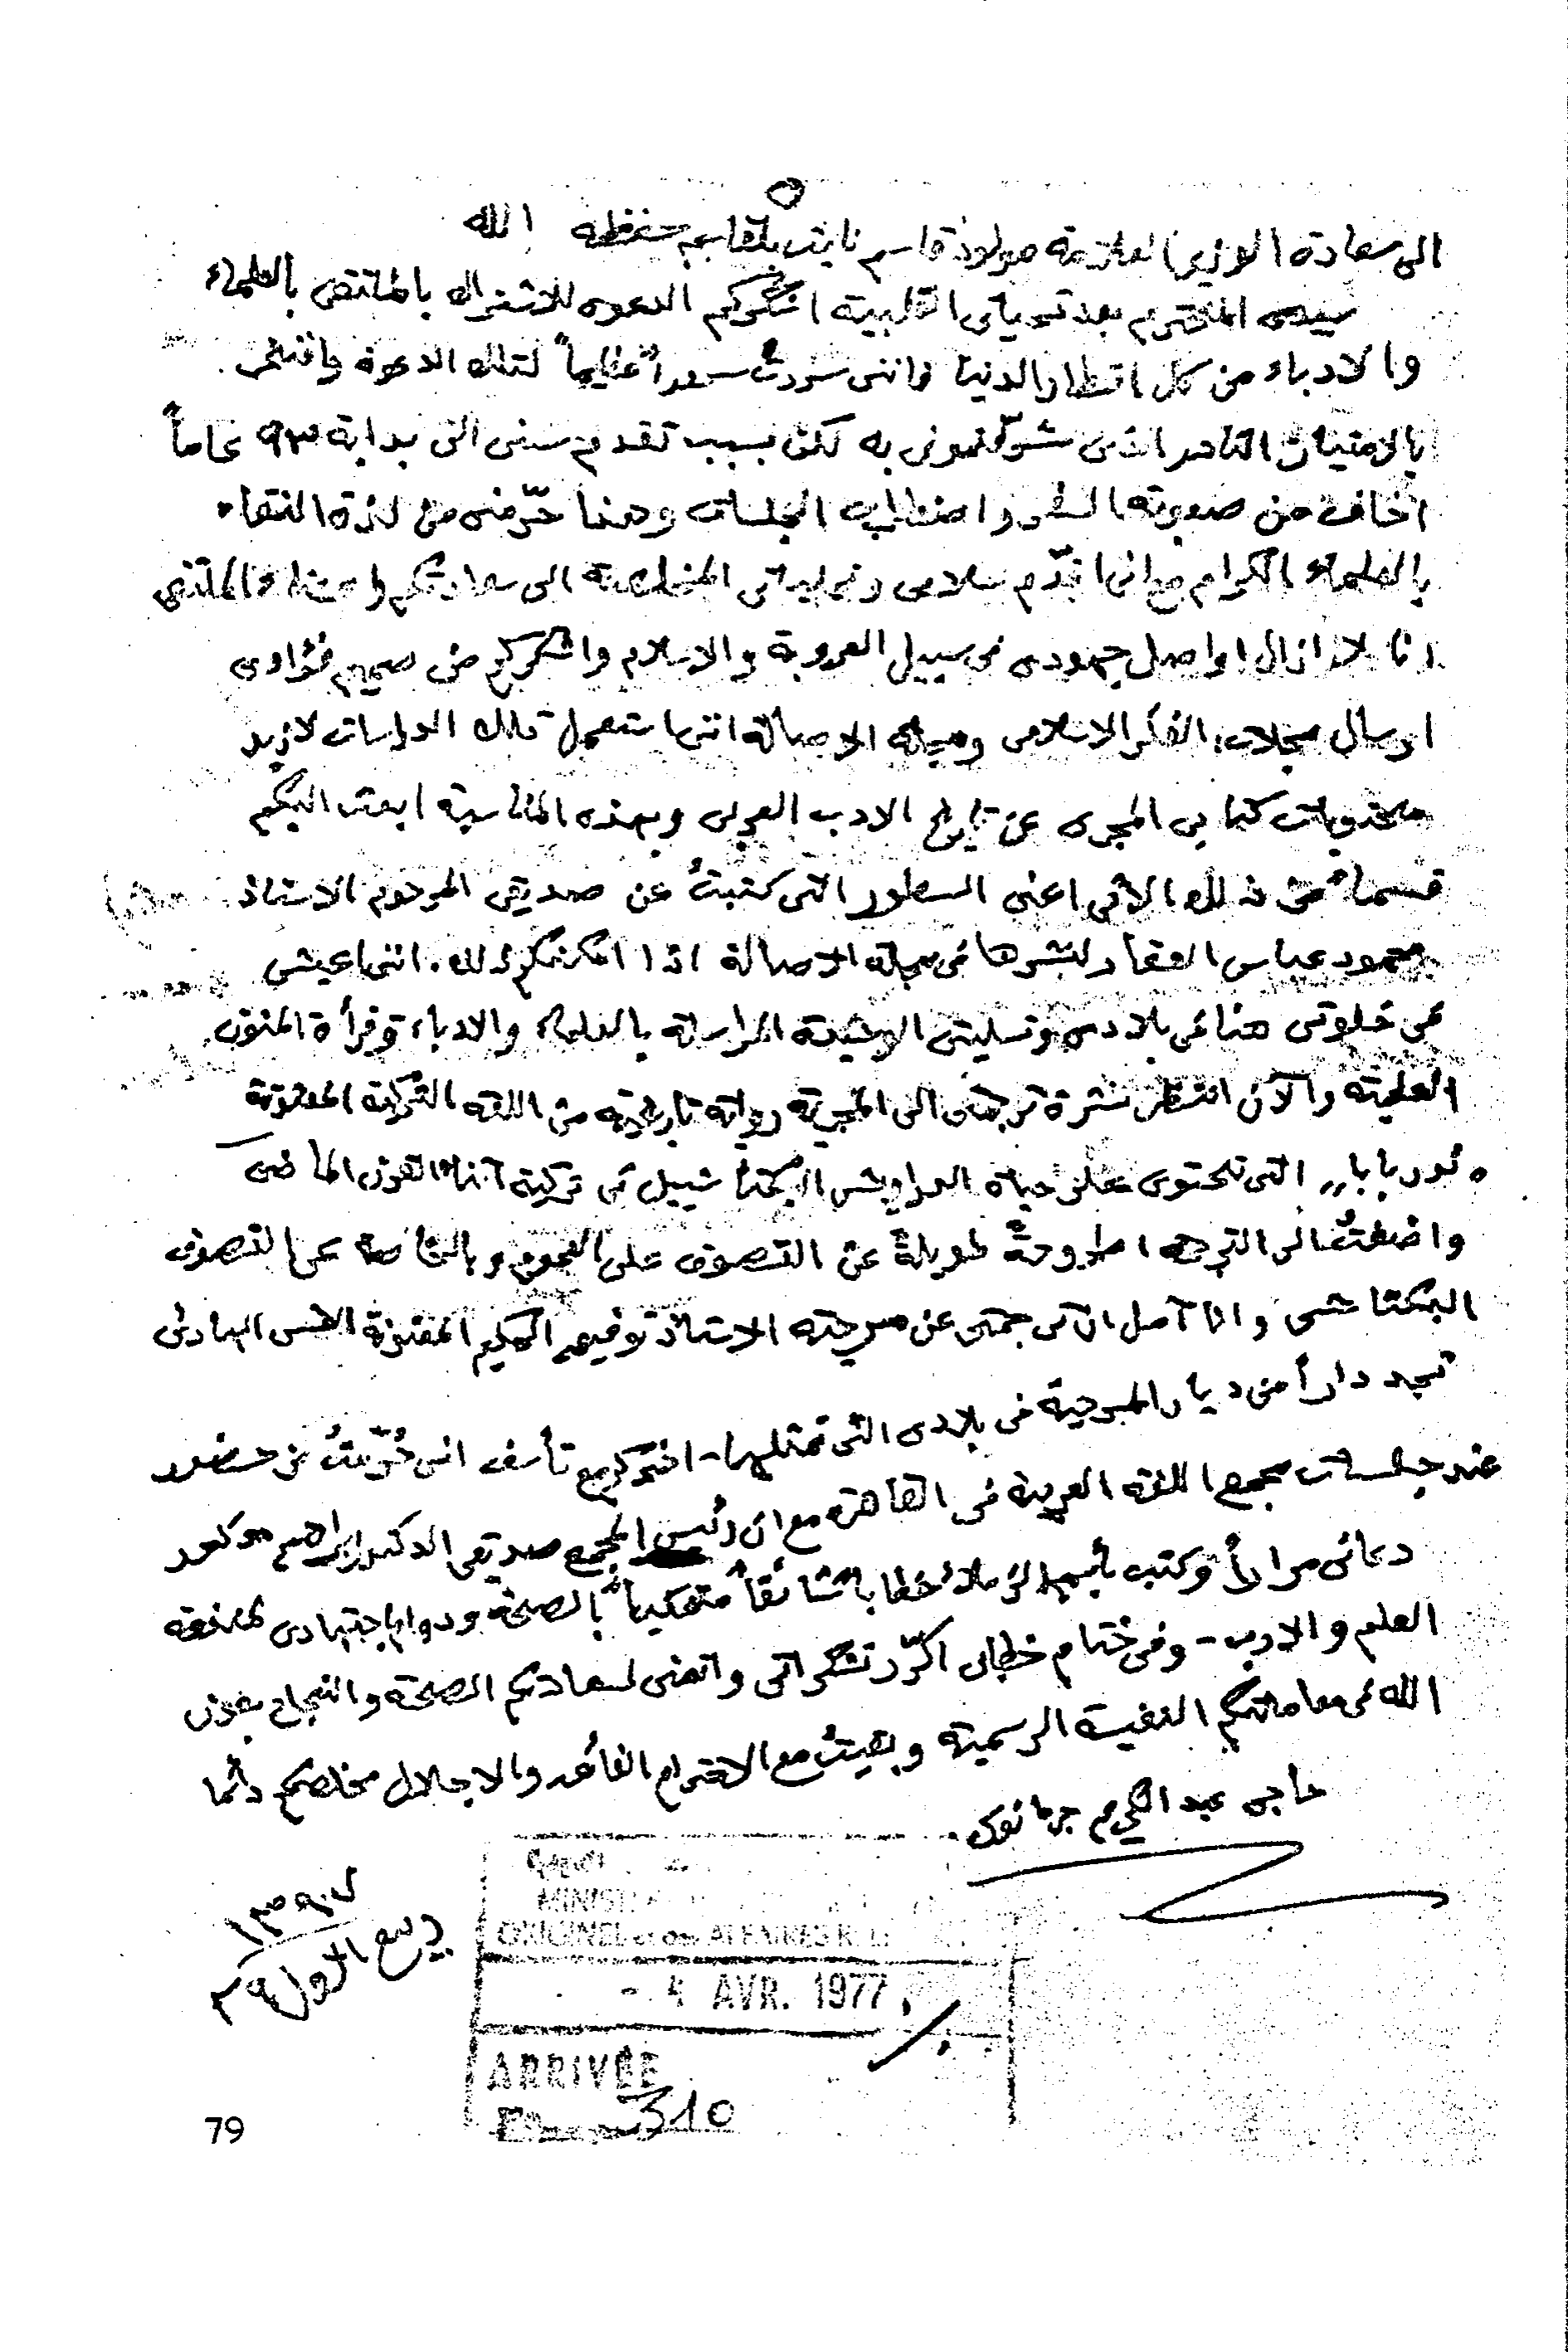 الى سعادة الوزير العلامة مولاود قاسم نايت بلقاسم حفظه الله
سيدى المحترم بعد تحياتى القلبية اشكركم الدعوه للاشتراك بالملتقى بالعلماء
والادباء من كل اقطار الدنيا فاننى سررت سروراً عظيماً لتلك الدعوة وافتخر
بالامتياز النادر الذى شرّفتمونى به لكن بسبب تقدم سنى الى بداية ٩٣ عاماً
اخاف من صعوبة السفر واضطراب الجلسات وهذا حرّمنى من لذة اللقاء
بالعلماء الكرام مع انى اقدّم سلامى وتحياتى المخلصة الى سعادتكم واعضاء الملتقى
انا لا ازال اواصل جهودى فى سبيل العروبة والاسلام واشكركم من صميم فؤادى
ارسال مجلات الفكر الاسلامى ومجلة الاصالة اننى استعمل تلك الدراسات لازيد
محتويات كتابى المجرى عن تاريخ الادب العربى وبهذه المناسبة ابعث اليكم
قسماً من ذلك الأتى اعنى السطور التى كتبتُ عن صديقى المرحوم الاستاذ
محمود عباس العقاد لنشرها فى مجلة الاصالة اذا امكنكم ذلك. اننى اعيش
فى خلوتى هنا فى بلادى وتسليتى الوحيدة المراسلة بالعلماء والادباء وقرأة المتون
العلمية والآن انتظر نشرة ترجمتى الى المجرية رواية تاريخية من اللغة التركية المعنونة
"نور بابا" التى تحتوى على حياة الدراويش البكتاشيين فى تركية اثناء القرن الماضى
واضفتُ الى الترجمة اطروحةً طويلةً عن التصوف على العموم وبالخاصة عن التصوف
البكتاشى وانا آمل ان ترجمتى عن مسرحية الاستاذ توفيق الحكيم المعنونة
تجد داراً من ديار المسرحية فى بلادى التى تمثلها - اخبركم مع تأسف اننى حُرّمتُ من حضور
عند جلسات مجمع اللغة العربية فى القاهرة مع ان رئيس المجمع صديقى الدكتور ابراهيم مدكور
دعانى مراراً وكتب باسم الزملاء خطاباً شائقاً متمنياً بالصحة ودوام اجتهادى لمنفعة
العلم والادب - وفى ختام خطابى اكرّر تشكراتى واتمنى لسعادتكم الصحة والنجاح بعون
الله فى معاملتكم النفيسة الرسمية وبقيتُ مع الاحترام الفائق والاجلال مخلصكم دائما
حاجى عبد الكريم جرمانوس
١٣٩٧
ربيع الاول ٢٩
MINIST
ORIGINEL et des AFFAIRES REL
- 4 AVR. 1977
ARRIVÉE
310
79